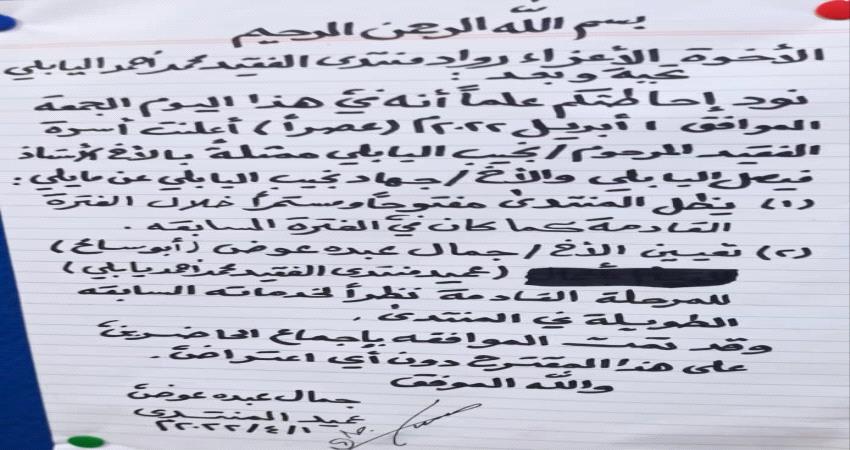 بسم الله الرحمن الرحيم
الأخوة الأعزاء رواد منتدى الفقيد محمد أحمد اليابلي
تحية وبعد :
نود إحاطتكم علماً أنه في هذا اليوم الجمعة
الموافق ١ أبريل ٢٠٢٢م (عصراً) أعلنت أسرة
الفقيد المرحوم / نجيب اليابلي ممثلة بالأخ الأستاذ
فيصل اليابلي والأخ / جهاد نجيب اليابلي عن مايلي :
(١) يظل المنتدى مفتوحاً ومستمراً خلال الفترة
القادمة كما كان في الفترة السابقه .
(٢) تعيين الأخ / جمال عبده عوض (أبو سناح)
(عميد منتدى الفقيد محمد أحمد يابلي)
للمرحلة القادمة نظراً لخدماته السابقه
الطويلة في المنتدى .
وقد تمت الموافقه بإجماع الحاضرين
على هذا المقترح دون أي اعتراض .
والله الموفق
جمال عبده عوض
عميد المنتدى
٢٠٢٢/٤/١